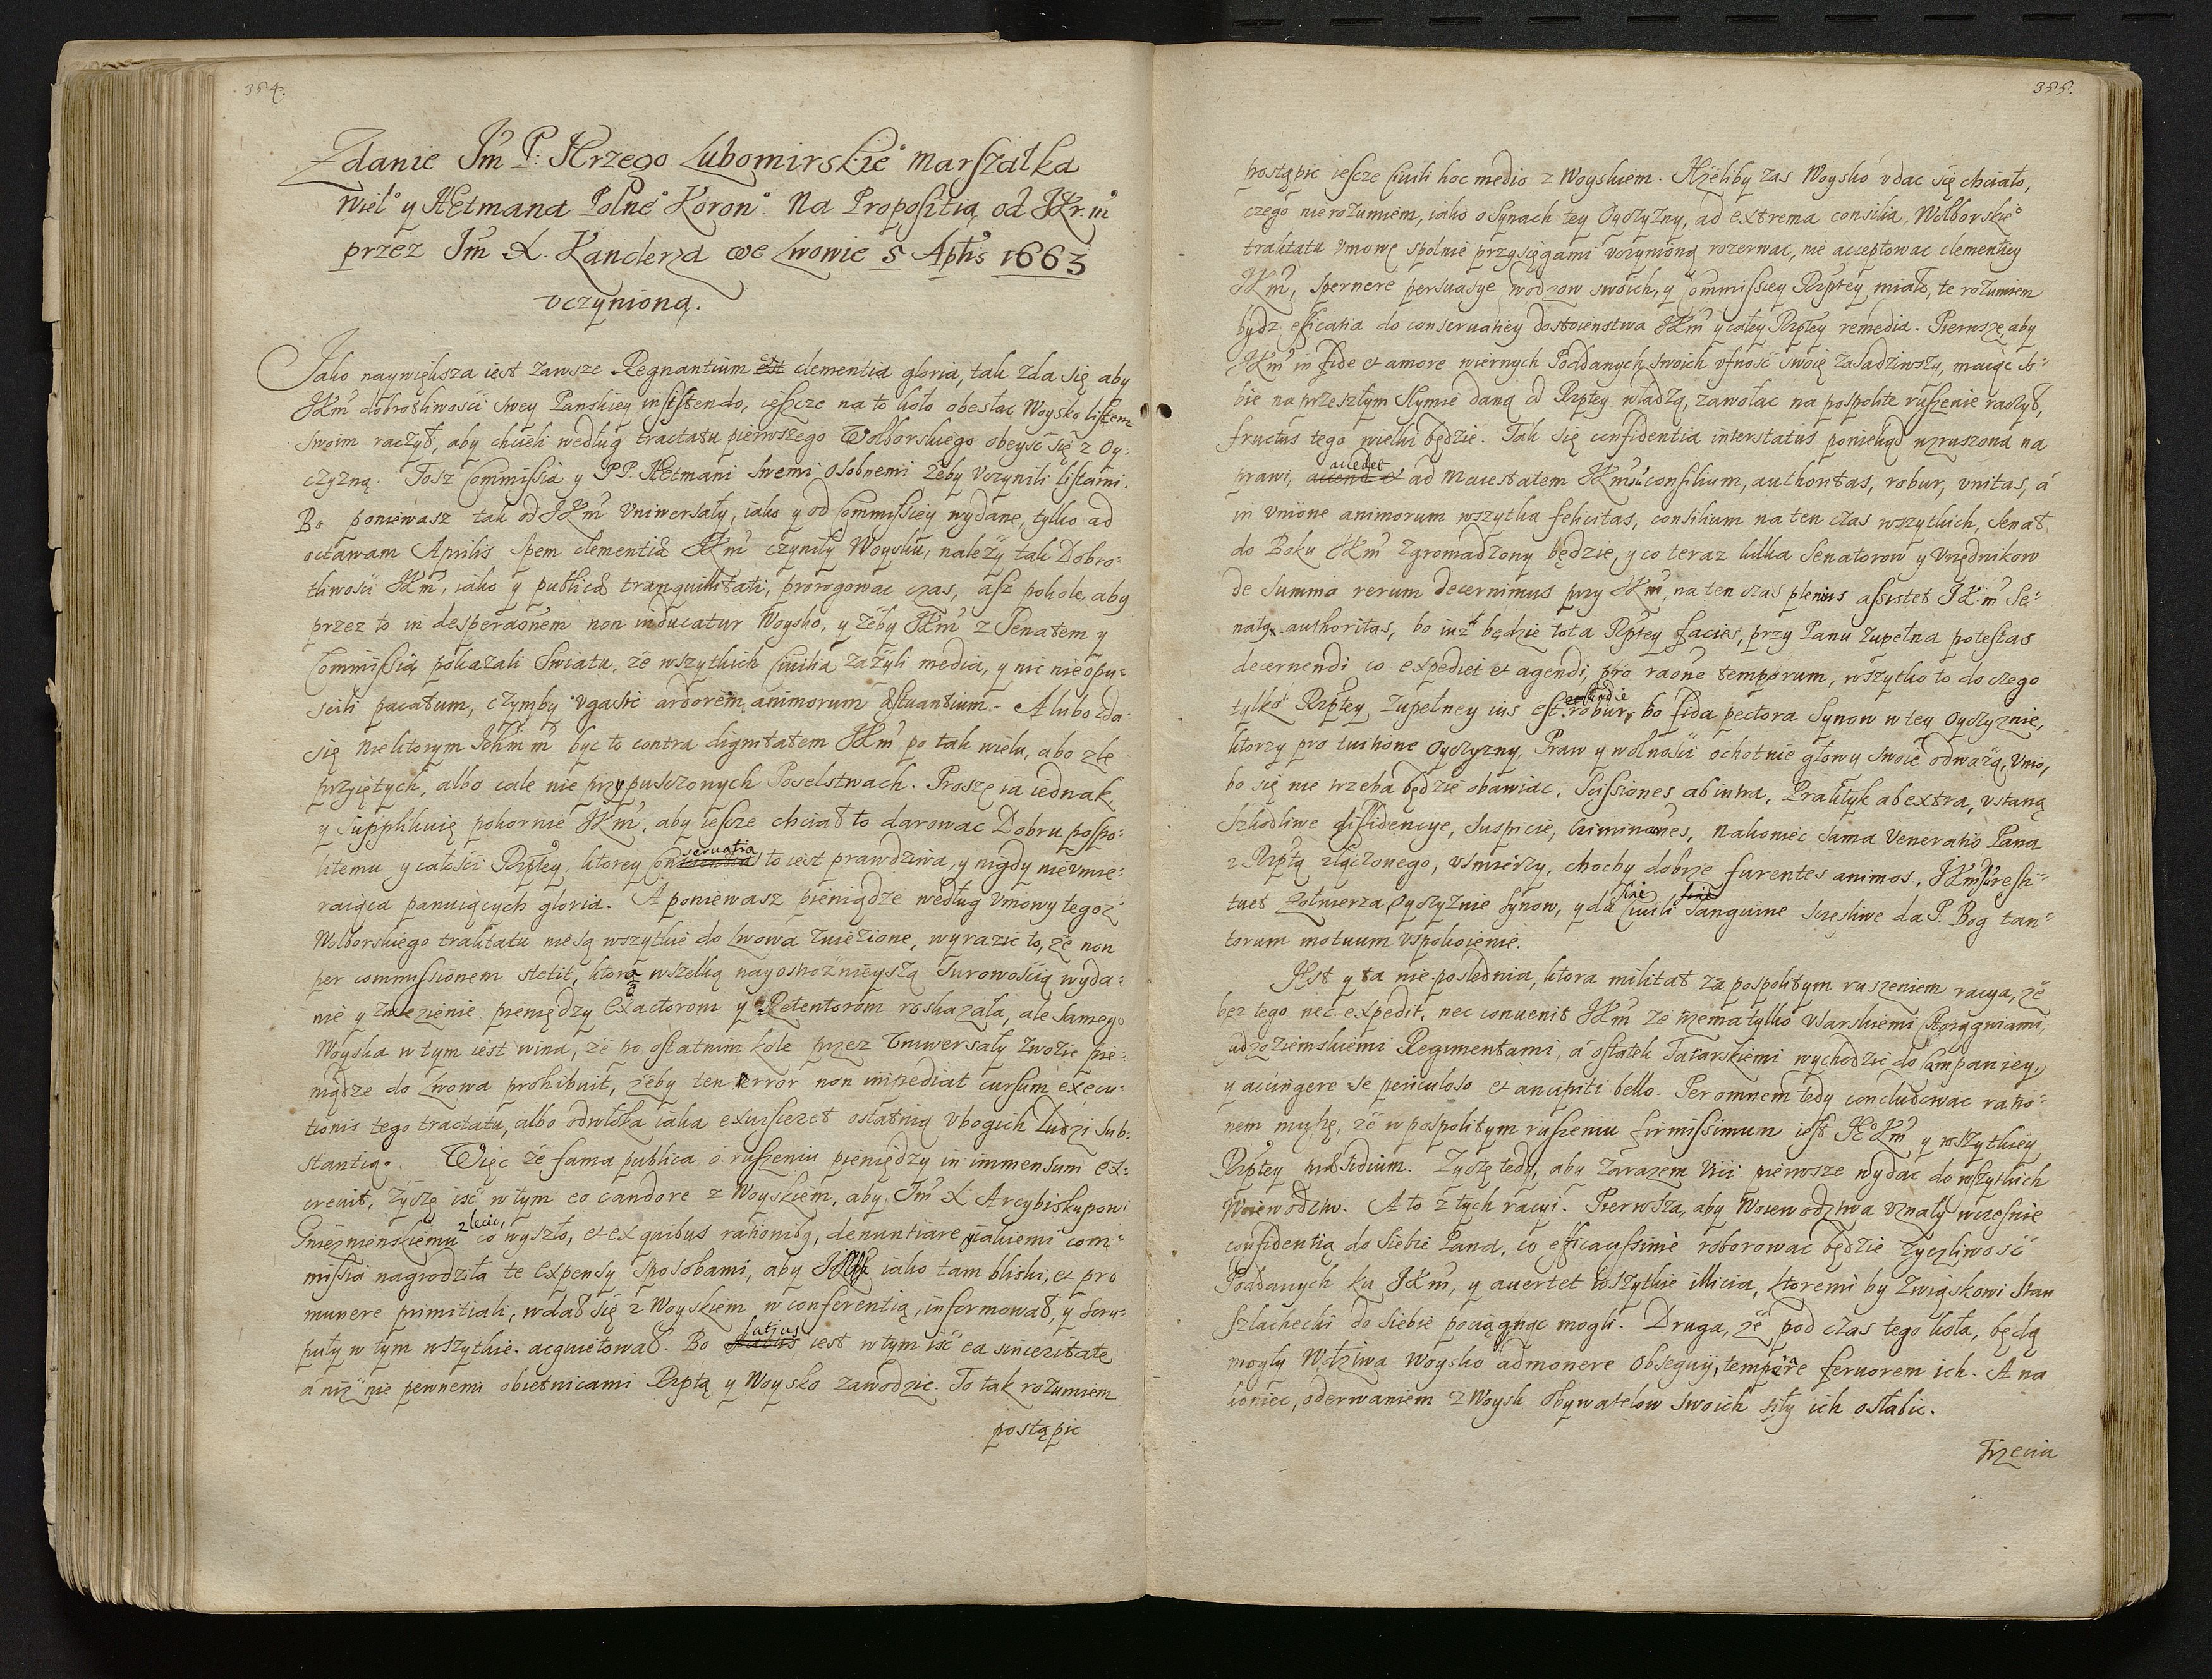 354.
Zdanie Jm̃ P: Jerzego Lubomirskieº marszałka
Wielº y Hetmana Polneº Koronº. Na Propositią od JKr.mͨi
przez Jm̃ X. Kanclerza we Lwowie 5 Aplis 1663
vczynioną.
Jako naywiększa iest zawsze Regnantium est clementia gloria, tak zda się aby
JKm̃ dobrotliwości swey Panskiey insistendo, ieszcze na to koło obesłac Woysko listem
swoim raczył, aby chcieli według tractatu pierwszego Wolborskiego obeysc się z Oy=
czyzną. Tosz Commissia y PP. Hetmani swemi osobnemi żeby vczynili listami.
Bo poniewasz tak od JKm̃ Vniwersały, iako y od Commissiey wydane, tylko ad
octawam Aprilis spem clementiæ JKm̃ czyniły Woysku, należy tak Dobro=
tliwości JKm̃, iako y publicæ tranquillitati, prorogowac czas, asz pokole, aby
przez to in desperaõnem non inducatur Woysko, y żeby JKm̃ z Senatem y
Commissią pokazali Swiatu, że wszytkich Ciuilia zażyli media, y nic nieopu=
scili pacatum, czymby vgasić ardorem animorum æstuantium. A lubo zda
się niektorym Ichm̃m̃ byc to contra dignitatem JKm̃ po tak wielu, abo zle
przyiętych, albo cale nie przypuszczonych Poselstwach. Proszę ia iednak
y supplikuię pokornie JKm̃, aby iescze chciał to darowac Dobru pospo=
litemu y całości Rzptey, ktorey conseruatia to iest prawdziwa, y nigdy nievmie=
raiąca panuiących gloria. A poniewasz pieniądze według Vmowy tegoż
Wolborskiego traktatu niesą wszytkie do Lwowa zwiezione, wyrazic to, że non
per commissionem stetit, ktora wszelką nayostrożnieyszą surowością wyda=
nie y zniezienie pieniędzy Exactorom y Retentorom roskazała, ale samego
Woyska w tym iest wina, że po ostatnim kole przez Vniwersały zwozic pie=
niądze do Lwowa prohibuit, żeby ten error non impediat cursum execu=
tionis tego tractatu, albo odwłoka iaka exuisceret ostatnią vbogich Ludzi sub=
stantią. Więc że fama publica o ruszeniu pieniędzy in immensum ex=
creuit, życzę isć w tym eo candore z Woyskiem, aby Jm̃ X Arcybiskupowi
Gnieznienskiemu zlecic, co wyszło, et ex quibus rationibꝯ, denuntiare, y iakiemi com=
missia nagrodziła te Expensy sposobami, aby iako tam bliski, et pro
munere primitiali, wdał się z Woyskiem w conferentią, informował, y scru=
puły w tym wszytkie acquietował. Bo satius iest w tym isć ea sinceritate
á niż nie pewnemi obietnicami Rzptą y Woysko zawodzic. To tak rozumiem
postąpic
355.
postąpic iescze Ciuili hoc medio z Woyskiem. Jeżeliby zas Woysko vdac się chciało,
czego nierozumiem, iako o Synach tey Oyczyzny, ad extrema consilia, Wolborskieº
traktatu vmowę spolnie przysięgami vczynioną rozerwac, nie acceptowac clementiey
JKm̃, spernere persuasye wodzow swoich, y Commissiey Rzptey miało, te rozumiem
bydz efficatia do conseruatiey dostoienstwa JKm̃ y całey Rzptey remedia. Pierwsze aby
JKm̃ in fide et amore wiernych Poddanych swoich vfność swoię zasadziwszy, maiąc so=
bie na przeszłym Seymie daną od Rzptey władzą, zawołac na pospolite ruszenie raczył,
fructus tego wielki będzie. Tak się confidentia inter status poniekąd naruszona na
prawi, accedet ad Maiestatem JKm̃ consilium, authoritas, robur, vnitas, á
in Vnione animorum wszytka felicitas, consilium na ten czas wszytkich, Senat
do Boku JKm̃ zgromadzony będzie, y co teraz kilka Senatorow y Vrzędnikow
de summa rerum decernimus przy JKm̃, na ten czas plenius assistet JK:m̃ Se=
natꝯ authoritas, bo iuż będzie tota Rzptey facies, przy Panu zupełna potestas
decernendi co expediet et agendi, pro raõne temporum, wszytko to do czego
tylko Rzptey zupełney ius est. robur będzie bo fida pectora Synow w tey Oyczyznie,
ktorzy pro tuitione Oyczyzny, Praw y wolności ochotnie głowy swoie odważą, Vnio,
bo się nie trzeba będzie obawiac. Scissiones ab intra, Praktyk ab extra, vstaną
szkodliwe diffidencye, suspicie, Criminaõnes, nakoniec sama Veneratio Pana
z Rzptą złączonego, vsmierzy, chocby dobrze furentes animos, JKm̃ resti=
tuet Zołnierza, Oyczyznie Synow, y da sine Ciuili sanguine sczęsliwe da P. Bog tan=
torum motuum vspokoienie.
Jest y ta nie poslednia, ktora militat za pospolitym ruszeniem racya, że
bez tego nec expedit, nec conuenit JKm̃ ze trzema tylko Vsarskiemi Chorągwiami,
cudzoziemskiemi Regimentami, á ostatek Tatarskiemi wychodzic do Campaniey,
y accingere se periculoso et ancipiti bello. Per omnem tedy concludowac ratio=
nem muszę, że w pospolitym ruszeniu firmissimum iest JeºKm̃ y wszytkiey
Rzptey præsidium. Zyczę tedy, aby zarazem Vici pierwsze wydac do wszytkich
Woiewodztw. A to z tych racyi. Pierwsza, aby Woiewodztwa vznały wczesnie
confidentią do siebie Pana, co efficacissimè roborowac będzie życzliwość
Poddanych ku JKm̃, y auertet wszytkie illicia, ktoremi by Związkowi Stan
szlachecki do siebie pociągnąc mogli. Druga, że pod czas tego koła, będą
mogły Wdztwa Woysko admonere obsequij, temperare feruorem ich. A na
koniec, oderwaniem z Woysk Obywatelow swoich siły ich osłabic.
Trzecia